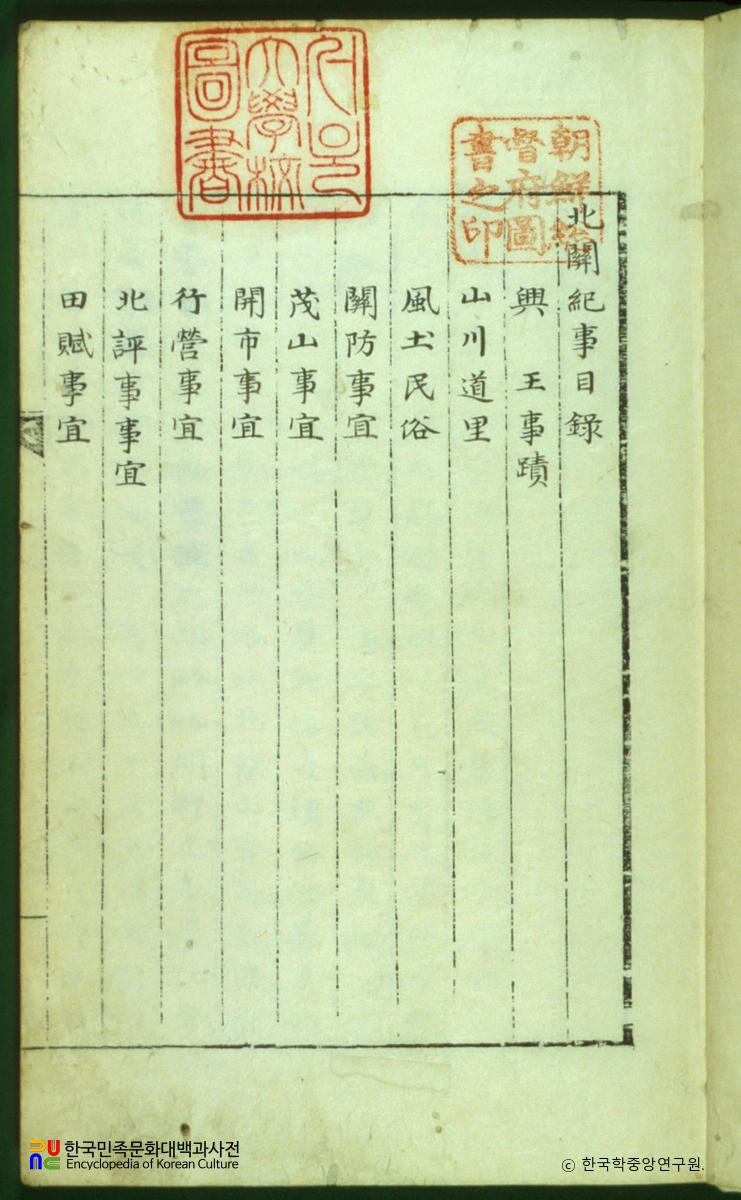 北關紀事目錄
興 王事蹟
山川道里
風土民俗
關防事宜
茂山事宜
開市事宜
行營事宜
北評事事宜
田賦事宜
朝鮮總
督府圖
書之印
서울
大學校
圖書
한국민족문화대백과사전
Encyclopedia of Korean Culture
© 한국학중앙연구원.